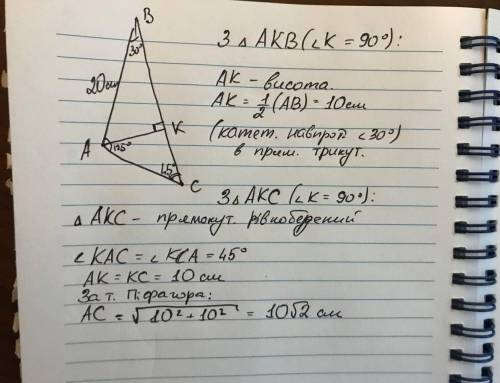 B
30°
20см
A
135°
K
45°
C
З △ AKB (∠K = 90°):
AK - висота.
AK = 1/2 (AB) = 10 см
(катет. навпрот. ∠30°)
в прям. трикут.
З △ AKC (∠K = 90°):
△ AKC - прямокут. рівнобедрений
∠KAC = ∠KCA = 45°
AK = KC = 10 см
За т. Піфагора:
AC = √10² + 10² = 10√2 см